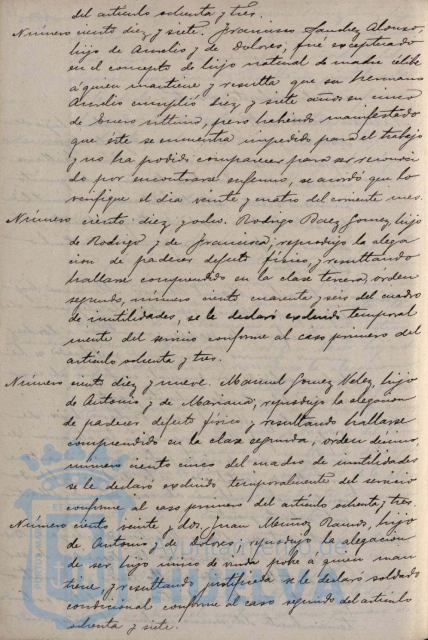 del artículo ochenta y tres.
Número ciento diez y siete. Francisco Sanchez Alonso,
hijo de Aurelio y de Dolores, fué exceptuado
en el concepto de hijo natural de madre célibe
á quien mantiene y resulta que su hermano
Aurelio cumplió diez y siete años en cinco
de Enero último, pero habiendo manifestado
que éste se encuentra impedido para el trabajo
y no ha podido comparecer para ser reconoci
do por encontrarse enfermo, se acordó que lo
verifique el dia veinte y cuatro del corriente mes.
Número ciento diez y ocho. Rodrigo Baez Gomez, hijo
de Rodrigo y de Francisca; reprodujo la alega
cion de padecer defecto físico, y resultando
hallarse comprendido en la clase tercera, órden
segundo, número ciento cuarenta y seis del cuadro
de inutilidades, se le declaró excluido temporal
mente del servicio conforme al caso primero del
artículo ochenta y tres.
Número ciento diez y nueve. Manuel Gomez Velez, hijo
de Antonio y de Mariana; reprodujo la alegacion
de padecer defecto físico y resultando hallarse
comprendido en la clase segunda, orden
número ciento cinco del cuadro de inutilidades
se le declaró excluido temporalmente del servicio
conforme al caso primero del artículo ochenta y tres.
Número ciento veinte y dos. Juan Muñoz Ramos, hijo
de Antonio y de Dolores; reprodujo la alegacion
de ser hijo único de viuda pobre a quien man
tiene y resultando justificada se le declaró soldado
condicional conforme al caso segundo del artículo
ochenta y siete.